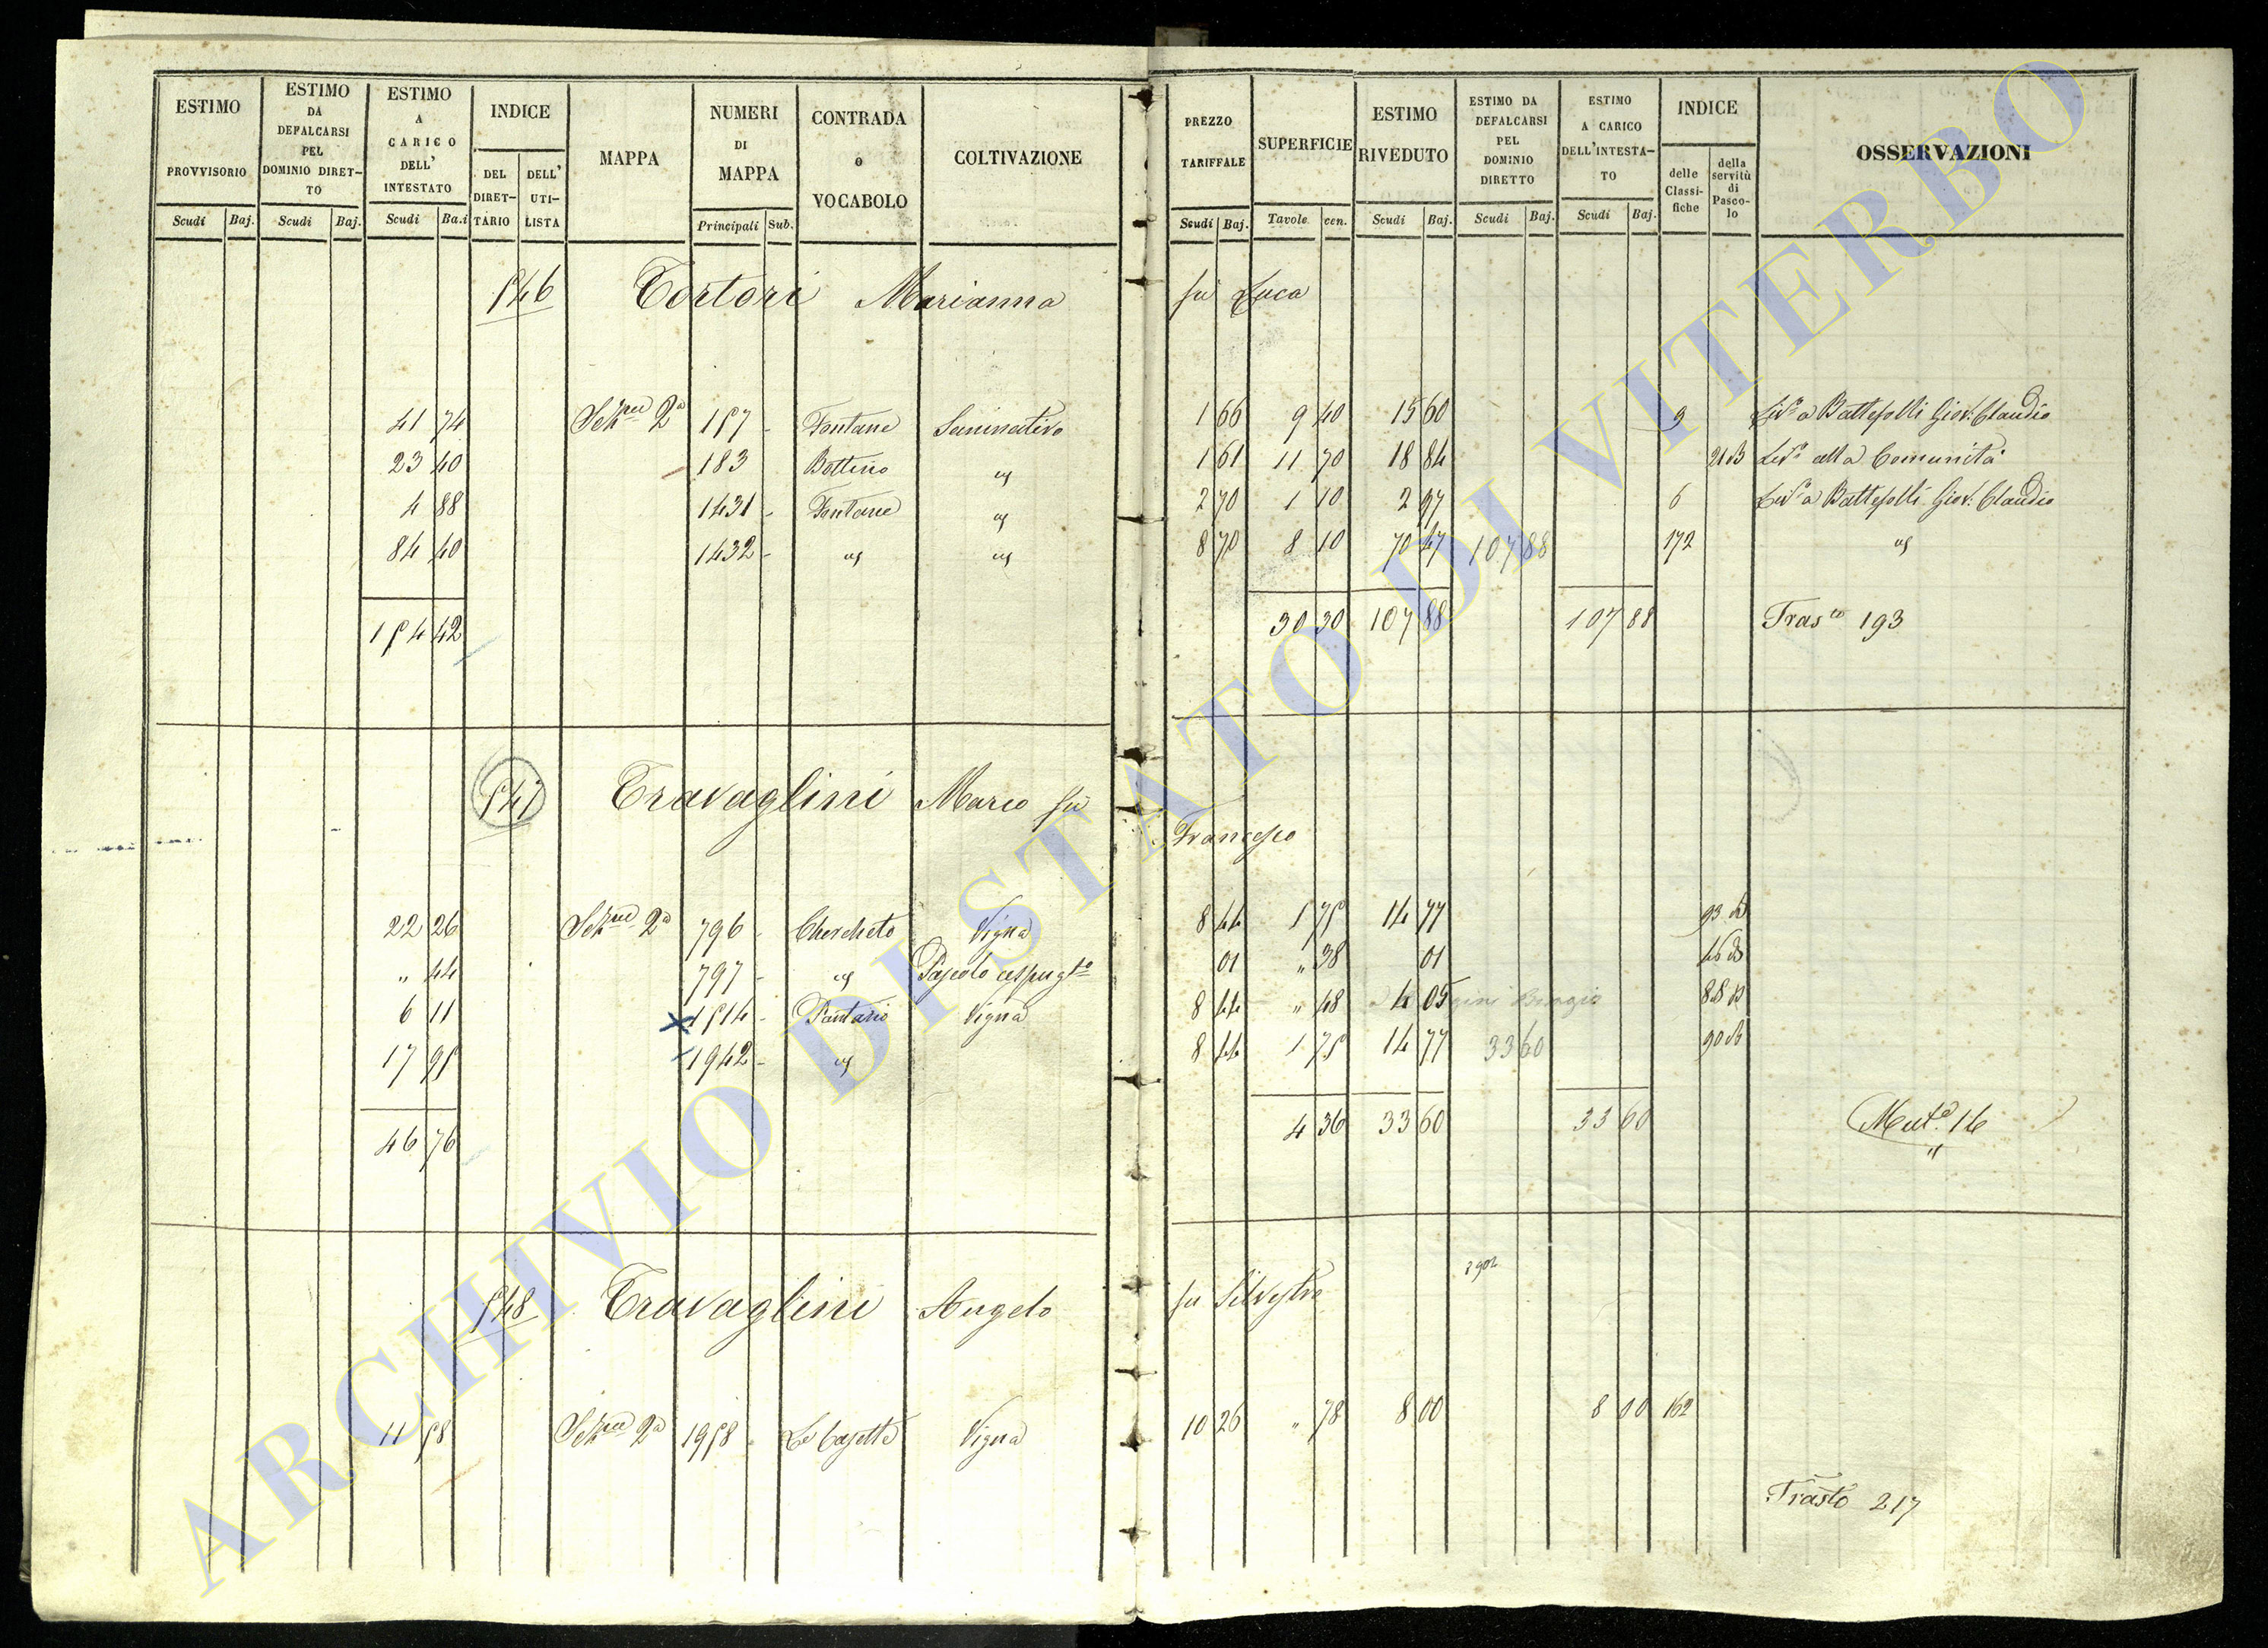 ESTIMO PROVVISORIO Scudi Baj.
ESTIMO DA DEFALCARSI PEL DOMINIO DIRETTO Scudi Baj.
ESTIMO A CARICO DELL' INTESTATO Scudi Ba.i
INDICE DEL DIRETTARIO DELL' UTILISTA
MAPPA
NUMERI DI MAPPA Principali Sub.
CONTRADA o VOCABOLO
COLTIVAZIONE
PREZZO TARIFFALE Scudi Baj.
SUPERFICIE Tavole cen.
ESTIMO RIVEDUTO Scudi Baj.
ESTIMO DA DEFALCARSI PEL DOMINIO DIRETTO Scudi Baj.
ESTIMO A CARICO DELL'INTESTATO Scudi Baj.
INDICE delle Classifiche della servitù di Pascolo
OSSERVAZIONI
546 Tortori Marianna fu Luca
41 74 Sezne 2a 157 - Fontane Seminativo 1 66 9 40 15 60 9 Liv.o a Battefolli Giov. Claudio
23 40 183 Bottino " 1 61 11 70 18 84 21 B Liv.o alla Comunità
4 88 1431 - Fontane " 2 70 1 10 2 97 6 Liv.o a Battefolli Giov. Claudio
84 40 1432 - " " 8 70 8 10 70 47 107 88 172 "
154 42 30 30 107 88 107 88 Trasto 193
547 Travaglini Marco fu Francesco
22 26 Sezne 2a 796 - Chercheto Vigna 8 44 1 75 14 77 93
" 44 797 - " Pascolo cespugto 01 " 38 01 46
6 11 1514 - Pantano Vigna 8 44 " 48 4 05 Biagio 88
17 95 1942 - " 8 44 1 75 14 77 33 60 90
46 76 4 36 33 60 33 60 Muta 14
548 Travaglini Angelo fu Silvestro
11 58 Sezne 2a 1958 - Le Casette Vigna 10 26 " 78 8 00 8 00 162
Trasto 217
ARCHIVIO DI STATO DI VITERBO